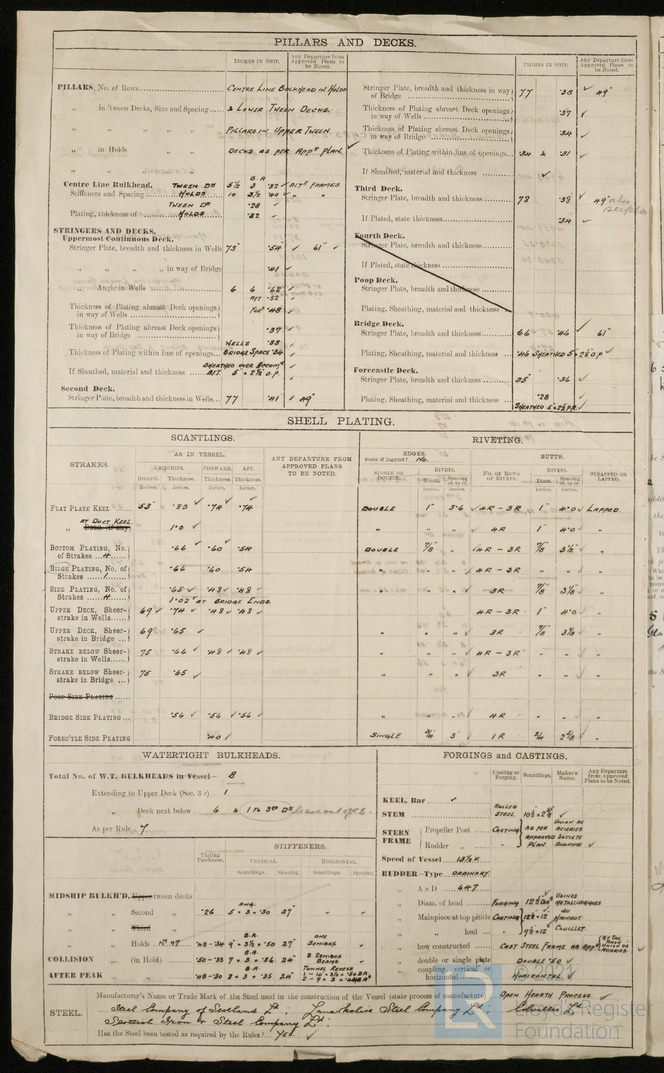 PILLARS AND DECKS.
INCHES IN SHIP.
Any Departure from Approved Plans to be Noted.
PILLARS, No. of Rows CENTRE LINE BULKHEAD IN HOLDS
„ in 'tween Decks, Size and Spacing & LOWER TWEEN DECKS.
„ „ „ „ PILLARS IN UPPER TWEEN
„ in Holds DECKS AS PER APPD PLAN ✓
„ „ „ „
B.A.
Centre Line Bulkhead. TWEEN DK 5½ 3 .32 ✓ ALTE FRAMES
Stiffeners and Spacing HOLDS 10 3½ .40 ✓ „ „
TWEEN DK .28 ✓
Plating, thickness of HOLDS .32 ✓
STRINGERS AND DECKS.
Uppermost Continuous Deck.
Stringer Plate, breadth and thickness in Wells 73" .54 ✓ 61" ✓
„ „ „ „ in way of Bridge .41 ✓
„ Angle in Wells 6 6 .62 ✓
AFT .52 ✓
Thickness of Plating abreast Deck openings in way of Wells FORD .48 ✓
Thickness of Plating abreast Deck openings in way of Bridge .37 ✓
Thickness of Plating within line of openings WELLS .38 ✓
BRIDGE SPACE .34 ✓
If Sheathed, material and thickness SHEATHED OVER ACCOMN
AFT. 5" × 2½" O.P. ✓
Second Deck.
Stringer Plate, breadth and thickness in Wells 77 .41 ✓ 49"
INCHES IN SHIP.
Any Departure from Approved Plans to be Noted.
Stringer Plate, breadth and thickness in way of Bridge 77 .38 ✓ 49" ✓
Thickness of Plating abreast Deck openings in way of Wells .37 ✓
Thickness of Plating abreast Deck openings in way of Bridge .34 ✓
Thickness of Plating within line of openings .34 & .31 ✓
If Sheathed, material and thickness ✓
Third Deck.
Stringer Plate, breadth and thickness 78 .38 ✓ 49"
If Plated, state thickness .34 ✓
Fourth Deck.
Stringer Plate, breadth and thickness
If Plated, state thickness
Poop Deck.
Stringer Plate, breadth and thickness
Plating, Sheathing, material and thickness
Bridge Deck.
Stringer Plate, breadth and thickness 66 .46 ✓ 61"
Plating, Sheathing, material and thickness .46 SHEATHED 5" × 2½" O.P. ✓
Forecastle Deck.
Stringer Plate, breadth and thickness 35" .36 ✓
Plating, Sheathing, material and thickness .28
SHEATHED 5" × 2½" P.P. ✓
SHELL PLATING.
SCANTLINGS.
RIVETING.
STRAKES.
AS IN VESSEL.
AMIDSHIPS. FORWARD. AFT.
Breadth. Thickness. Thickness. Thickness.
Inches. Inches. Inches. Inches.
ANY DEPARTURE FROM APPROVED PLANS TO BE NOTED.
EDGES.
State if joggled? No.
SINGLE OR DOUBLE.
RIVETS.
Diam. Spacing cr. to cr.
BUTTS.
No. OF ROWS OF RIVETS.
RIVETS.
Diam. Spacing cr. to cr.
STRAPPED OR LAPPED.
FLAT PLATE KEEL 53" .83 ✓ .74 ✓ .74 ✓ DOUBLE 1" 3.6 ✓ 4R – 3R ✓ 1" 4.0 ✓ LAPPED
„ AT DUCT KEEL 1.0 ✓ „ „ „ 4R 1" 4.0 ✓ „
BOTTOM PLATING, No. of Strakes 4 .66 ✓ .60 ✓ .54 DOUBLE ⅞ „ ✓ 4R – 3R ✓ ⅞ 3½ ✓ „
BILGE PLATING, No. of Strakes 1 .66 .60 .54 „ „ „ ✓ 4R – 3R ✓ „ „ „
SIDE PLATING, No. of Strakes 4 .65 ✓ .48 ✓ .48 ✓ „ „ „ ✓ 3R ⅞ 3⅛ ✓ „
1.02 AT BRIDGE ENDS
UPPER DECK, Sheerstrake in Wells 69 ✓ .74 ✓ .48 ✓ .48 ✓ 4R – 3R 1" 4.0 ✓ „
UPPER DECK, Sheerstrake in Bridge 69 .65 ✓ „ „ „ ✓ 3R ⅞ 3⅛ ✓ „
STRAKE BELOW Sheerstrake in Wells 75 .66 ✓ .48 ✓ .48 ✓ „ „ „ ✓ 4R – 3R „ „ ✓ „
STRAKE BELOW Sheerstrake in Bridge 75 .65 ✓ „ „ „ ✓ 3R „ „ ✓ „
POOP SIDE PLATING
BRIDGE SIDE PLATING .56 ✓ .56 ✓ .56 ✓ „ „ „ ✓ 4R „ „ ✓ „
FOREC'TLE SIDE PLATING .40 ✓ SINGLE ¾ 3 ✓ 1R ¾ 2⅝ ✓ „
WATERTIGHT BULKHEADS.
Total No. of W.T. BULKHEADS in Vessel— 8
„ Extending to Upper Deck (Sec. 3 c) 1
„ „ Deck next below 6 & 1 TO 3RD DK
As per Rule 7
Plating Thickness.
STIFFENERS.
VERTICAL. HORIZONTAL.
Scantlings. Spacing. Scantlings. Spacing.
MIDSHIP BULKH'D, Upper tween decks
„ „ Second „ .26 ANG. 5 × 3 × .30 27" „ ✓
„ „ Third „
„ „ Holds .48–.34 B.A. 9 × 3½ × .50 27" ONE SEMIBOX ✓
COLLISION „ (in Hold) .50–.35 B.A. 9 × 3 × .36 24" 3 SEMIBOX BEAMS ✓
AFTER PEAK „ „ .48–.30 B.A. 8 × 3 × .35 24" TUNNEL RECESS
FORGINGS and CASTINGS.
Casting or Forging. Scantlings. Maker's Name. Any Departure from Approved Plans to be Noted.
KEEL, Bar ✓
STEM ROLLED STEEL 10½" × 2⅜" ✓
STERN FRAME { Propeller Post CASTING AS PER APPROVED PLAN. UNION DE ACIERIES
„ Rudder „ „ ✓
Speed of Vessel 13½ K
RUDDER—Type ORDINARY.
„ A × D 447.
„ Diam. of head FORGING 12⅝ DIAR ✓ USINES METALLURGIQUES DU HAINAUT COUILLET
„ Mainpiece at top pintle CASTING 12⅝ × 12" ✓
„ „ heel „ 9½ × 12" ✓
„ how constructed CAST STEEL FRAME AS APPD ✓
„ double or single plate DOUBLE .50 ✓
„ coupling, vertical or horizontal HORIZONTAL ✓
STEEL. Manufacturer's Name or Trade Mark of the Steel used in the construction of the Vessel (state process of manufacture) OPEN HEARTH PROCESS ✓
Steel Company of Scotland Ld; Lanarkshire Steel Company Ld Colvilles Ld
Scottish Iron & Steel Company Ld
Has the Steel been tested as required by the Rules? Yes. ✓
© 2021
Lloyd's Register Foundation
LR